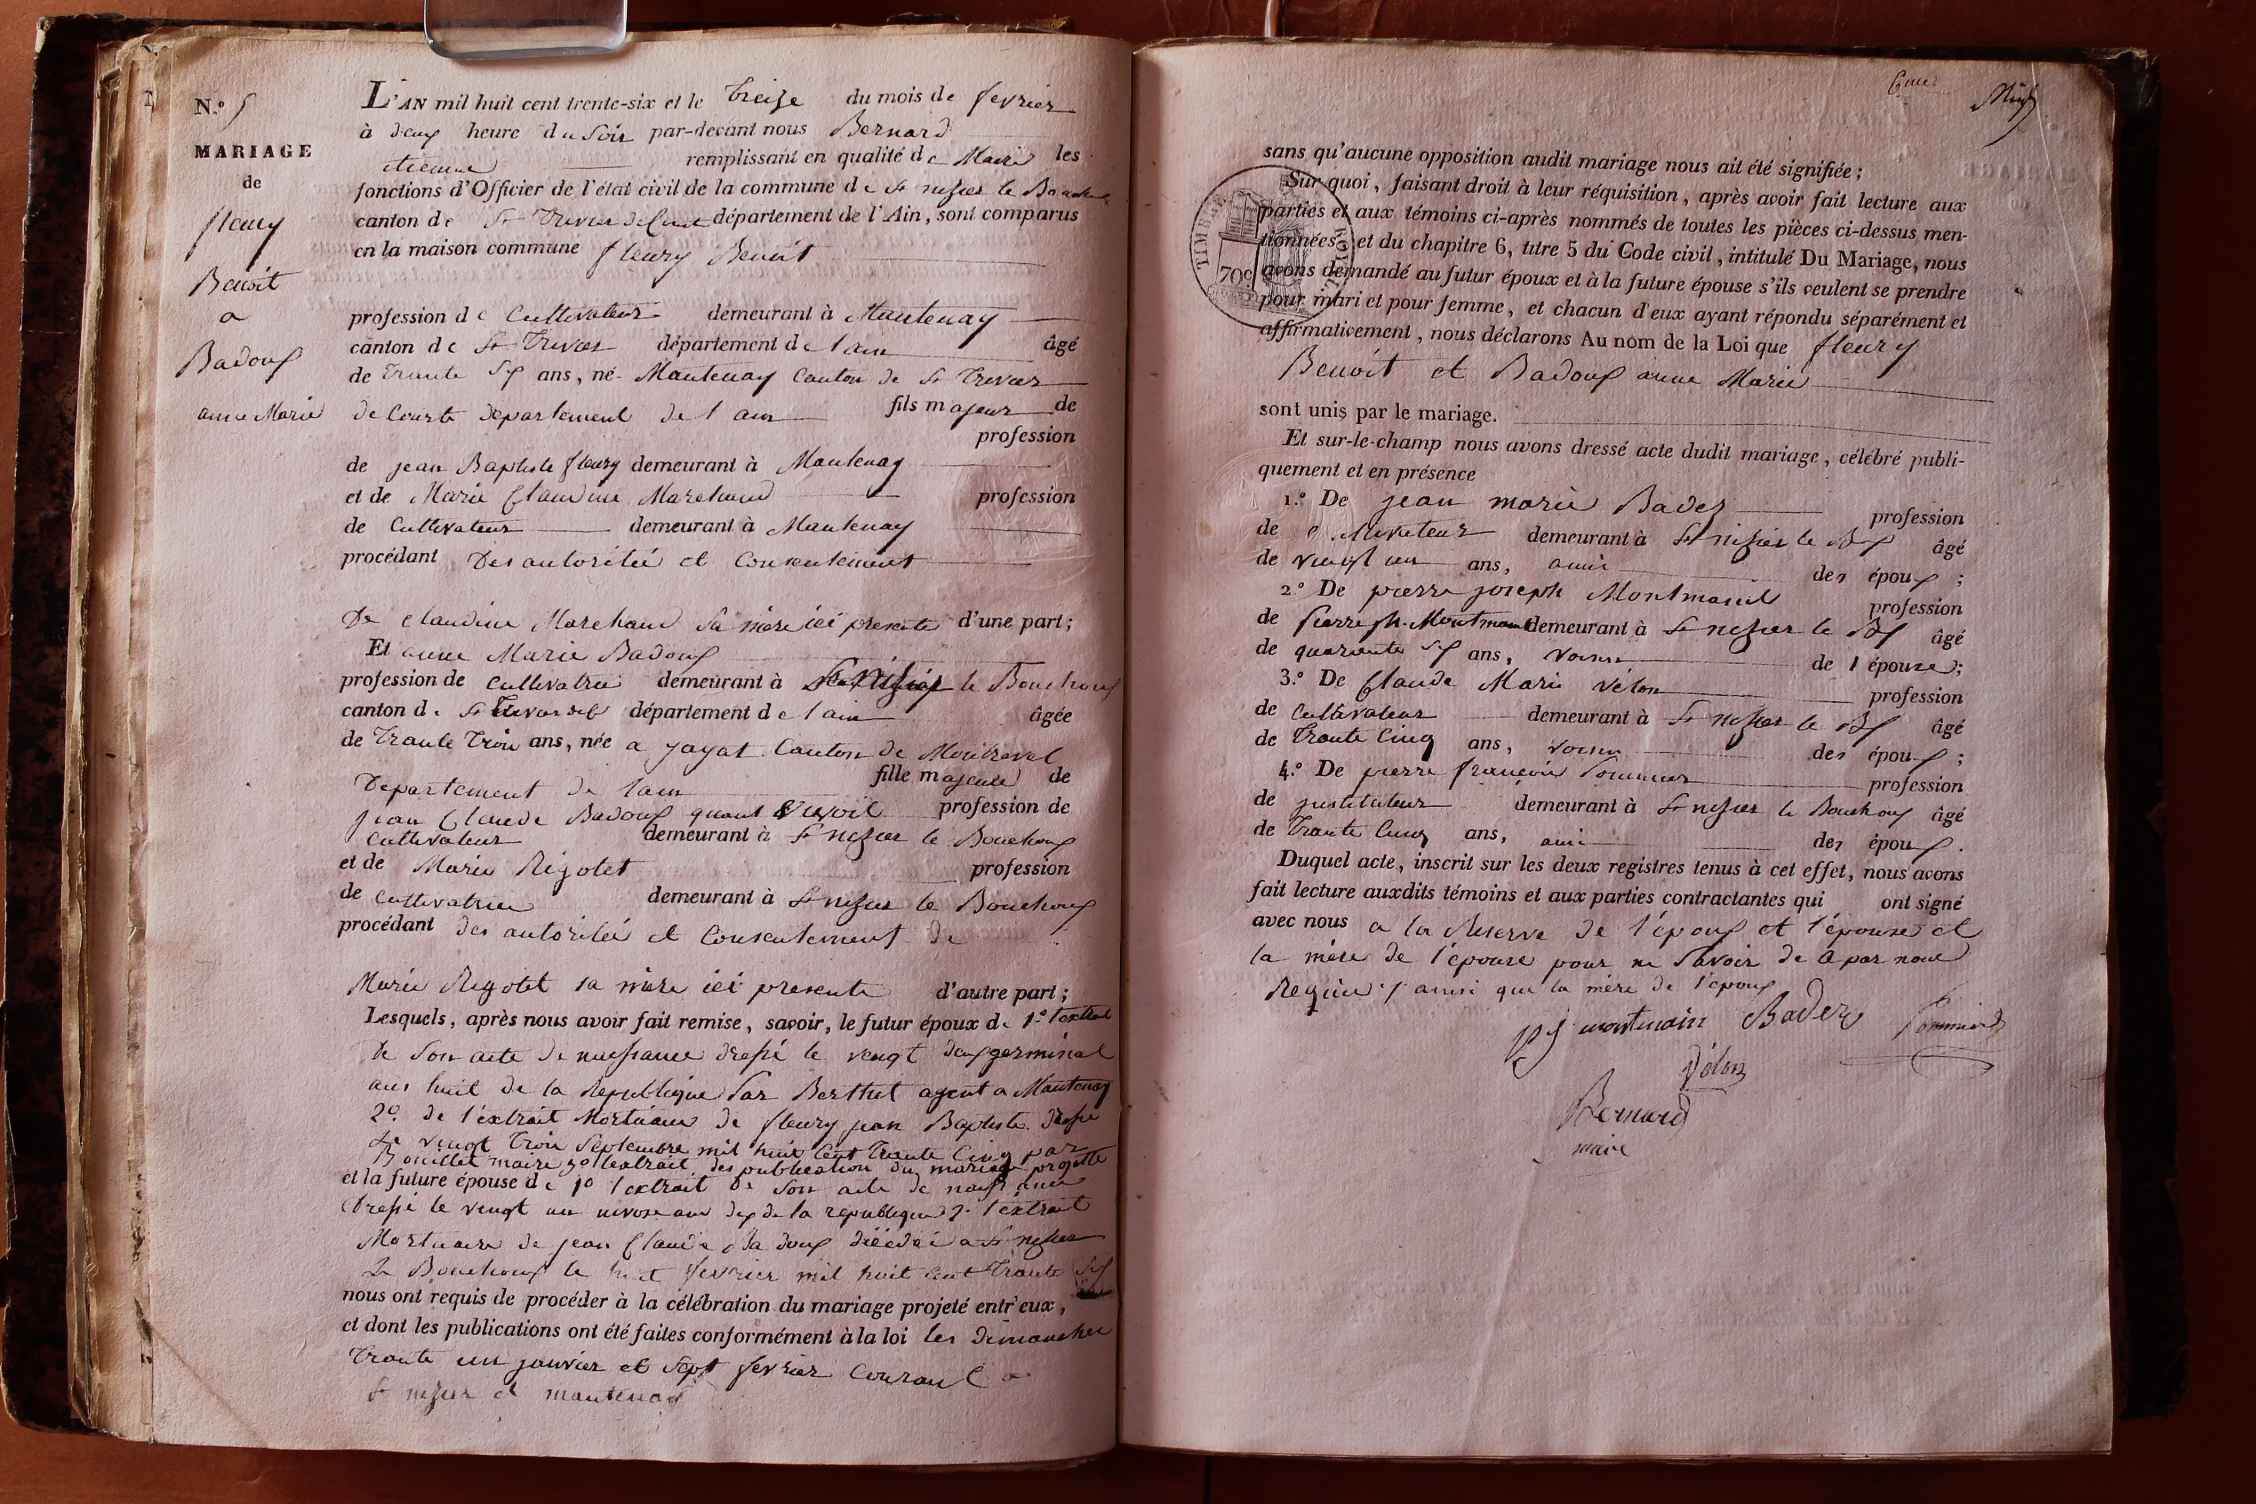 N.º 5
MARIAGE
de
fleury
Benoit
a
Badoux
anne Marie
L'AN mil huit cent trente-six et le treize du mois de fevrier
à deux heure du Soir par-devant nous Bernard
etienne remplissant en qualité de Maire les
fonctions d'Officier de l'état civil de la commune de St nizier le Bouchoux
canton de St Trivier de Courte département de l'Ain, sont comparus
en la maison commune fleury Benoit
profession de Cultivateur demeurant à Mantenay
canton de St Trivier département de l ain âgé
de Trante Six ans, né Mantenay Canton de St Trivier
de Courte departement de l ain fils majeur de
profession
de jean Baptiste fleury demeurant à Mantenay
et de Marie Claudine Marchand profession
de Cultivateur demeurant à Mantenay
procédant Des autorité et Consentement
De Claudine Marchand Sa mère ici presente d'une part;
Et anne Marie Badoux
profession de Cultivatrice demeurant à St Nizier le Bouchoux
canton de St Trivier de C département de l ain âgée
de Trante Trois ans, née a jayat Canton de Montrevel
Departement de l ain fille majeure de
jean Claude Badoux quand vivoit profession de
Cultivateur demeurant à St nizier le Bouchoux
et de Marie Rigotet profession
de Cultivatrice demeurant à St nizier le Bouchoux
procédant des autorité et Consentement de
Marie Rigotet sa mère ici presente d'autre part;
Lesquels, après nous avoir fait remise, savoir, le futur époux de 1º l'extrait
De Son acte de naissance dressé le vengt deux germinal
ans huit de la Republique Par Berthet agent a Mantenay
2º de l'extrait Mortuaire de fleury jean Baptiste dressé
Le vengt trois Septembre mil huit Cent Trante Cinq par
Bouillet maire 3º l'extrait des publication du mariage projetté
et la future épouse de 1º l'extrait de Son acte de naissance
dressé le vengt un nivose ans dix de la republique 2º l'extrait
Mortuaire de jean Claude Badoux décédé a St nizier
Le Bouchoux le huit fevrier mil huit Cent Trante Six
nous ont requis de procéder à la célébration du mariage projeté entr'eux,
et dont les publications ont été faites conformément à la loi les dimanches
Trante un janvier et Sept fevrier Courant a
St nizier et mantenay
sans qu'aucune opposition audit mariage nous ait été signifiée;
Sur quoi, faisant droit à leur réquisition, après avoir fait lecture aux
parties et aux témoins ci-après nommés de toutes les pièces ci-dessus men-
tionnées, et du chapitre 6, titre 5 du Code civil, intitulé Du Mariage, nous
avons demandé au futur époux et à la future épouse s'ils veulent se prendre
pour mari et pour femme, et chacun d'eux ayant répondu séparément et
affirmativement, nous déclarons Au nom de la Loi que fleury
Benoit et Badoux anne Marie
sont unis par le mariage.
Et sur-le-champ nous avons dressé acte dudit mariage, célébré publi-
quement et en présence
1.º De jean marie Bader profession
de Cultivateur demeurant à St nizier le Bx âgé
de vengt un ans, ami des époux;
2.º De pierre joseph Montmain profession
de pierre demeurant à St nizier le Bx âgé
de quarante Six ans, voisin de l épouse;
3.º De Claude Marie Vélon profession
de Cultivateur demeurant à St nizier le Bx âgé
de Trante Cinq ans, voisin des époux;
4.º De pierre françois Pommier profession
de jnstituteur demeurant à St nizier le Bouchoux âgé
de Trante Cinq ans, ami des époux.
Duquel acte, inscrit sur les deux registres tenus à cet effet, nous avons
fait lecture auxdits témoins et aux parties contractantes qui ont signé
avec nous a la Reserve de l'époux et l'épouse et
la mère de l'épouse pour ne Savoir de a par nous
Requie ./. ainsi que la mère de l'époux
pj montmain Bader
Vélon
Bernard
maire
TIMBRE ROYAL
70c